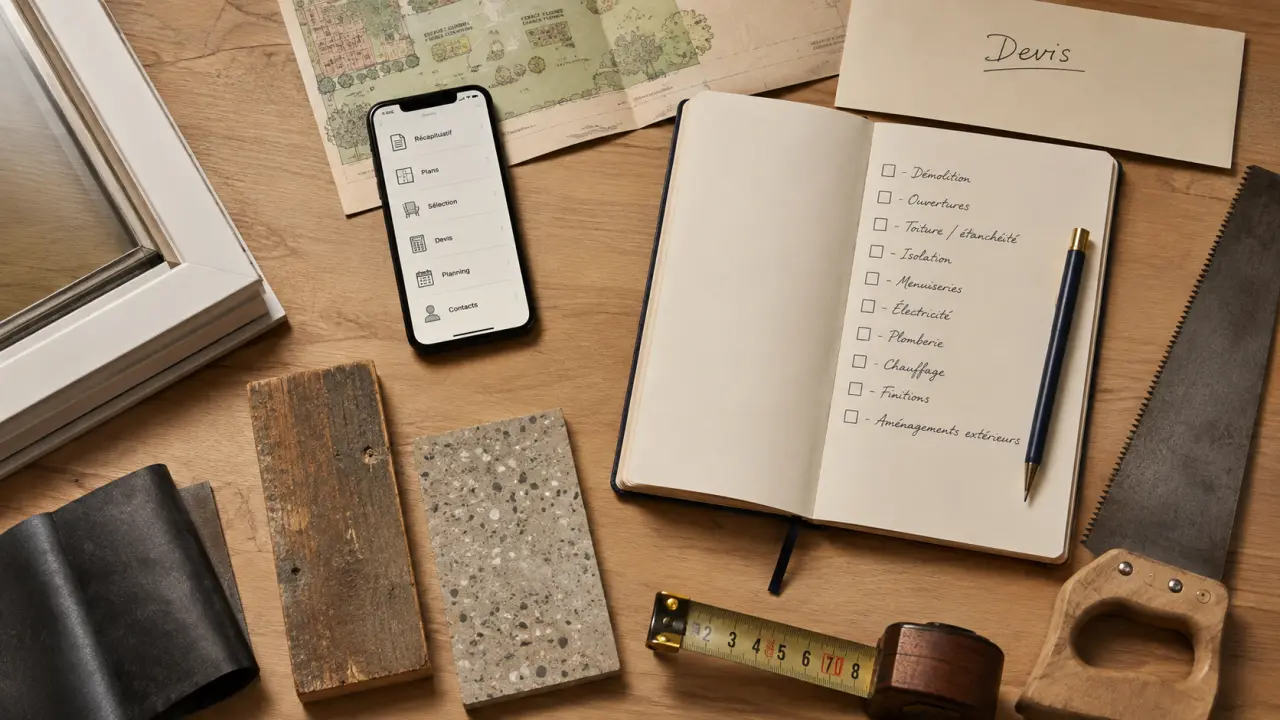 Devis
Récapituatif
Plans
Sélection
Devis
Planning
Contacts
- Démolition
- Ouvertures
- Toiture / étanchéité
- Isolation
- Menuiseries
- Électricité
- Plomberie
- Chauffage
- Finitions
- Aménagements extérieurs
2 3 4 5 6 70 8